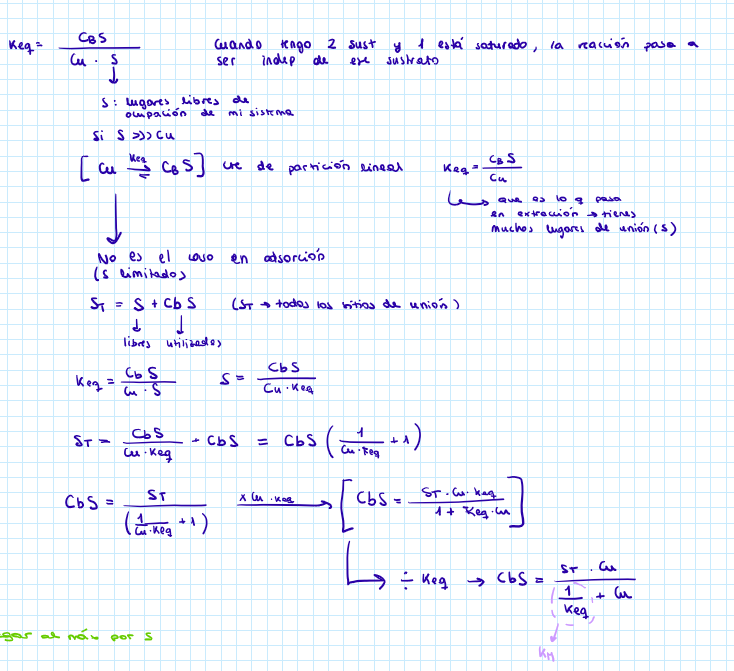 Keq = CBS / Cu · S
Cuando tengo 2 sust y 1 está saturado, la reacción pasa a
ser indep de ese sustrato
S: lugares libres de
ocupación de mi sistema
Si S >>> Cu
[ Cu Keq ⇌ CBS ] cte de partición lineal
Keq = CBS / Cu
que es lo q pasa
en extracción → tienes
muchos lugares de unión (S)
No es el caso en adsorción
(S limitados)
ST = S + CbS (ST → todos los sitios de unión)
libres utilizados
Keq = CbS / Cu · S
S = CbS / Cu · Keq
ST = CbS / Cu · Keq + CbS = CbS ( 1 / Cu · Keq + 1 )
CbS = ST / ( 1 / Cu · Keq + 1 ) x Cu · Keq → [ CbS = ST · Cu · Keq / 1 + Keq · Cu ]
÷ Keq → CbS = ST · Cu / 1 / Keq + Cu
gar al máx por S
KM